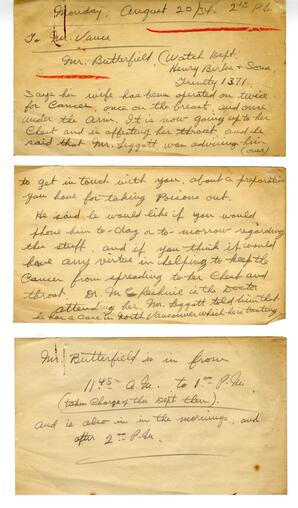 Monday, August 20/34. 2 P.M.
To Mr. Vance
Mr. Butterfield, (Watch Dept.
Henry Birks & Sons
Trinity 1371.
Says his wife has been operated on twice
for Cancer, once on the breast, and once
under the Arm. It is now going up to her
Chest and is affecting her throat, and he
said that Mr. Leggatt was advising him
(over)
to get in touch with you, about a preparation
you have for taking Poisons out.
He said he would like if you would
phone him to-day or to-morrow regarding
this stuff, and if you think it would
have any virtue in helping to keep the
Cancer from spreading to her Chest and
throat. Dr. is the Doctor
attending her. Mr. Leggatt told him that
he has a case in North Vancouver which he is treating
Mr. Butterfield is in from
11 45 A.M. to 1 P.M.
(takes Charge of the Dept then).
and is also in in the mornings, and
after 2 P.M.